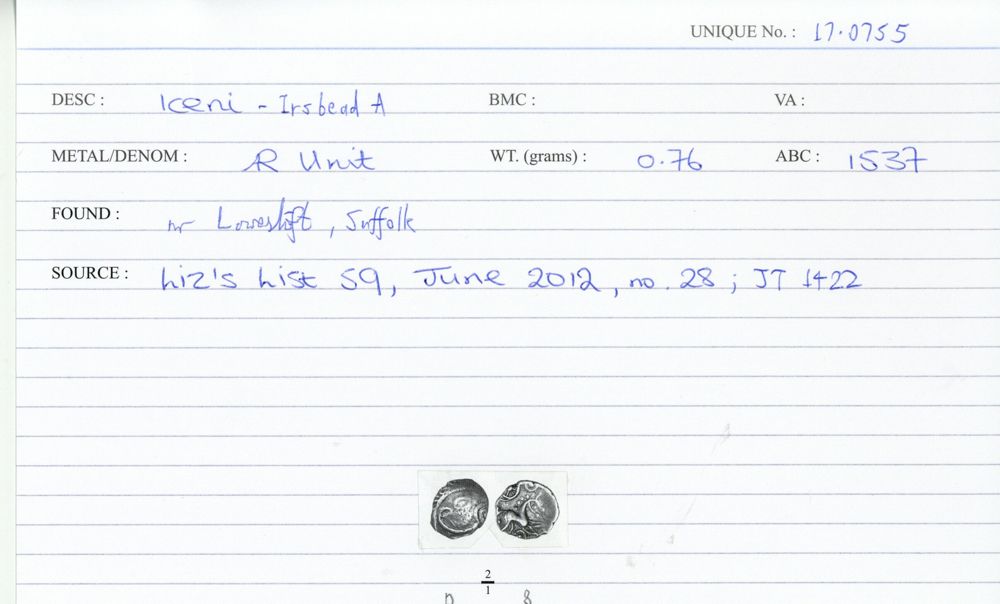 UNIQUE No. : 17.0755
DESC : Iceni - Irsbead A BMC : VA :
METAL/DENOM : R Unit WT. (grams) : 0.76 ABC : 1537
FOUND : nr Lowestoft, Suffolk
SOURCE : Liz's List 59, June 2012, no. 28; JT 1422
2
1